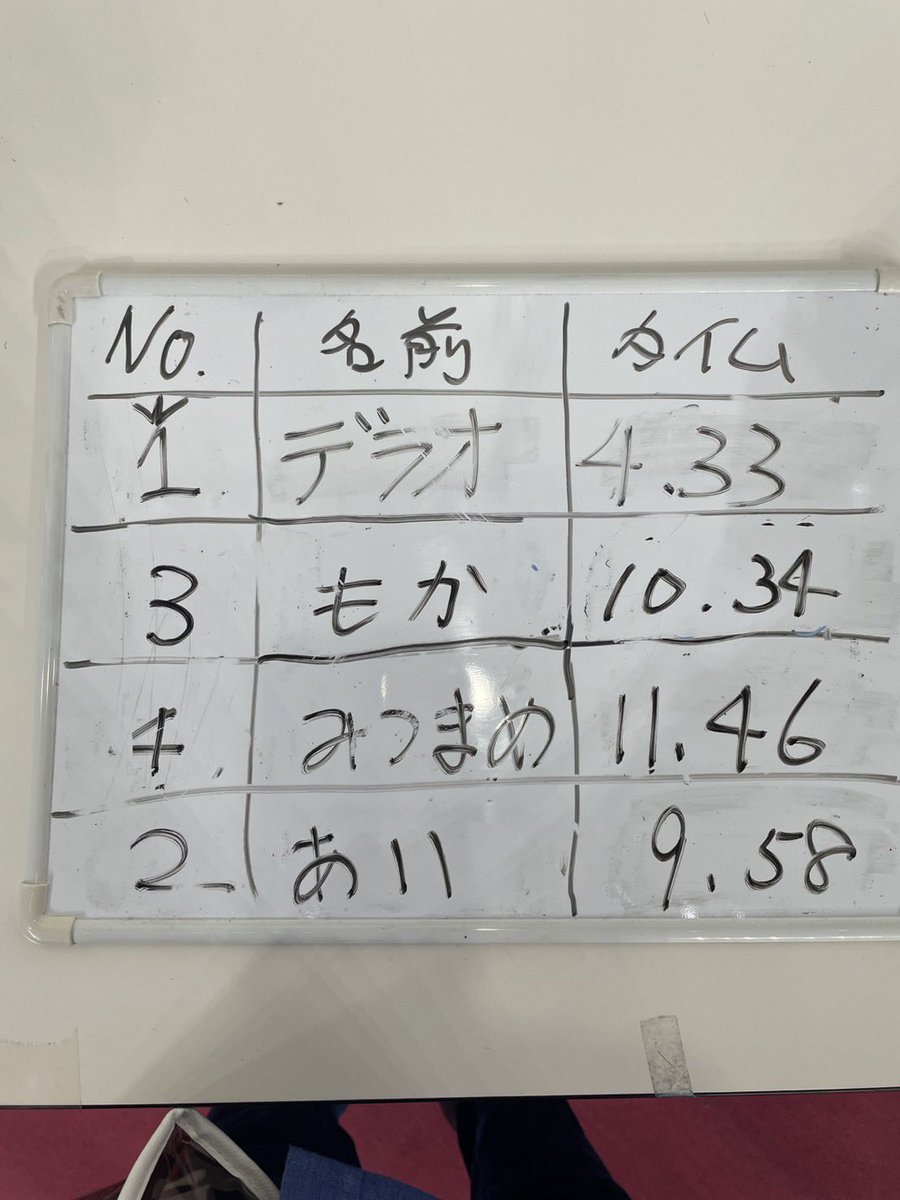 No. 名前 タイム
1 デラオ 4.33
3 もか 10.34
4 みつまめ 11.46
2 あい 9.58